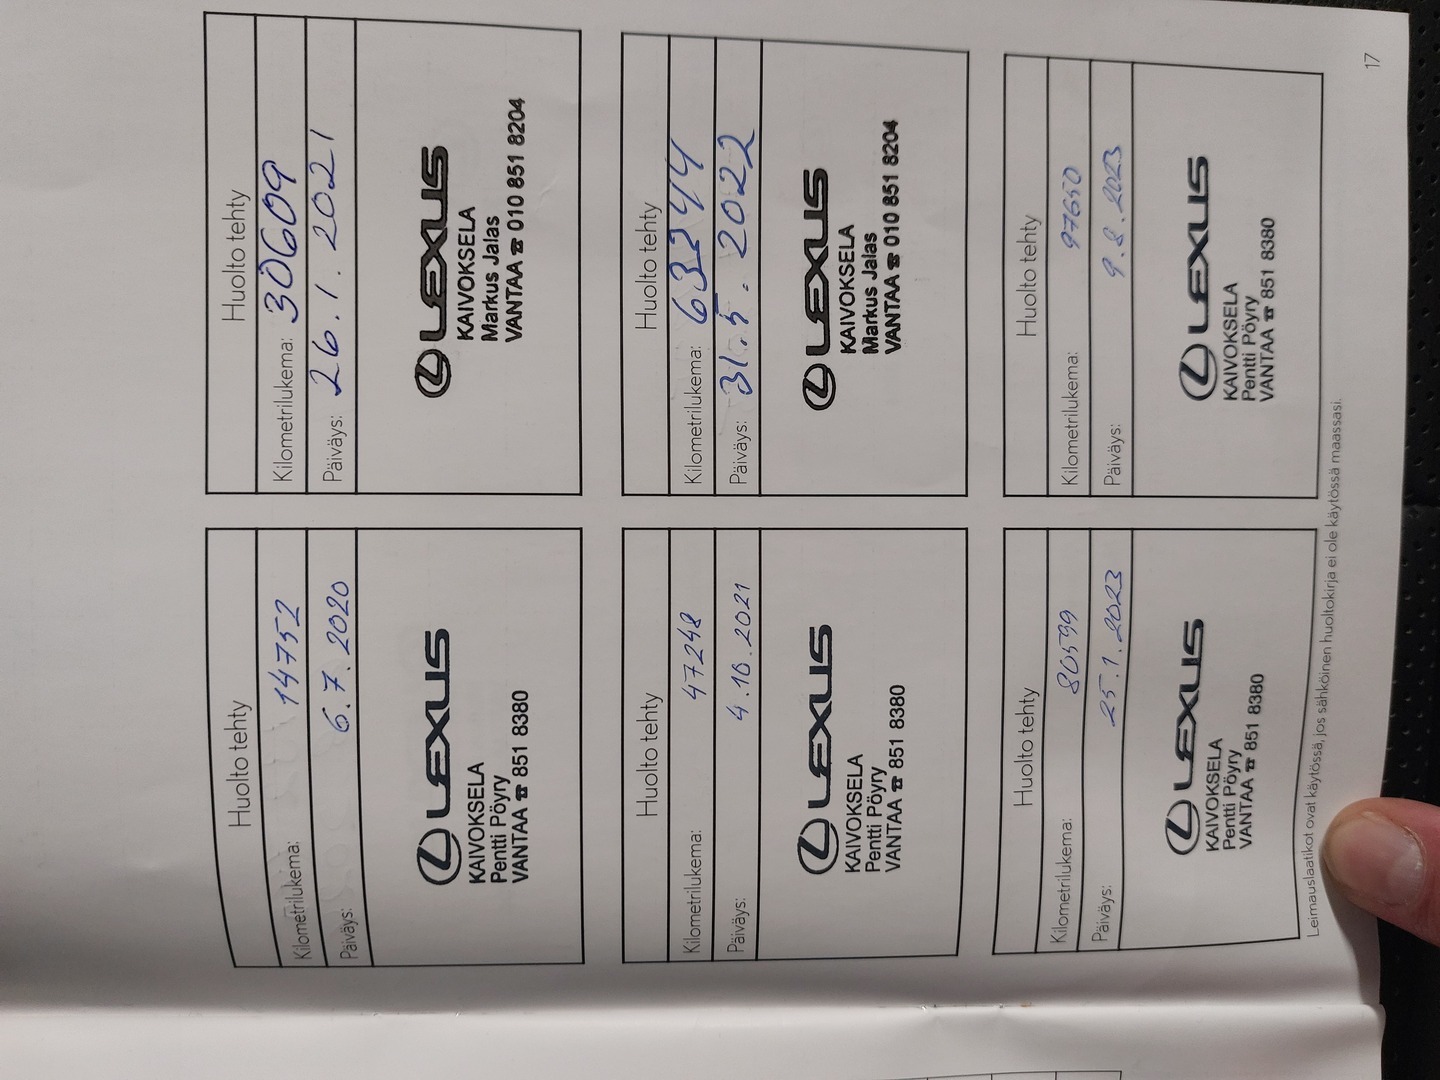 Huolto tehty
Kilometrilukema: 14752
Päiväys: 6.7.2020
LEXUS
KAIVOKSELA
Pentti Pöyry
VANTAA ☎ 851 8380
Huolto tehty
Kilometrilukema: 30609
Päiväys: 26.1.2021
LEXUS
KAIVOKSELA
Markus Jalas
VANTAA ☎ 010 851 8204
Huolto tehty
Kilometrilukema: 47248
Päiväys: 4.10.2021
LEXUS
KAIVOKSELA
Pentti Pöyry
VANTAA ☎ 851 8380
Huolto tehty
Kilometrilukema: 63244
Päiväys: 31.5.2022
LEXUS
KAIVOKSELA
Markus Jalas
VANTAA ☎ 010 851 8204
Huolto tehty
Kilometrilukema: 80599
Päiväys: 25.1.2023
LEXUS
KAIVOKSELA
Pentti Pöyry
VANTAA ☎ 851 8380
Huolto tehty
Kilometrilukema: 97650
Päiväys: 9.8.2023
LEXUS
KAIVOKSELA
Pentti Pöyry
VANTAA ☎ 851 8380
Leimauslaatikot ovat käytössä, jos sähköinen huoltokirja ei ole käytössä maassasi.
17